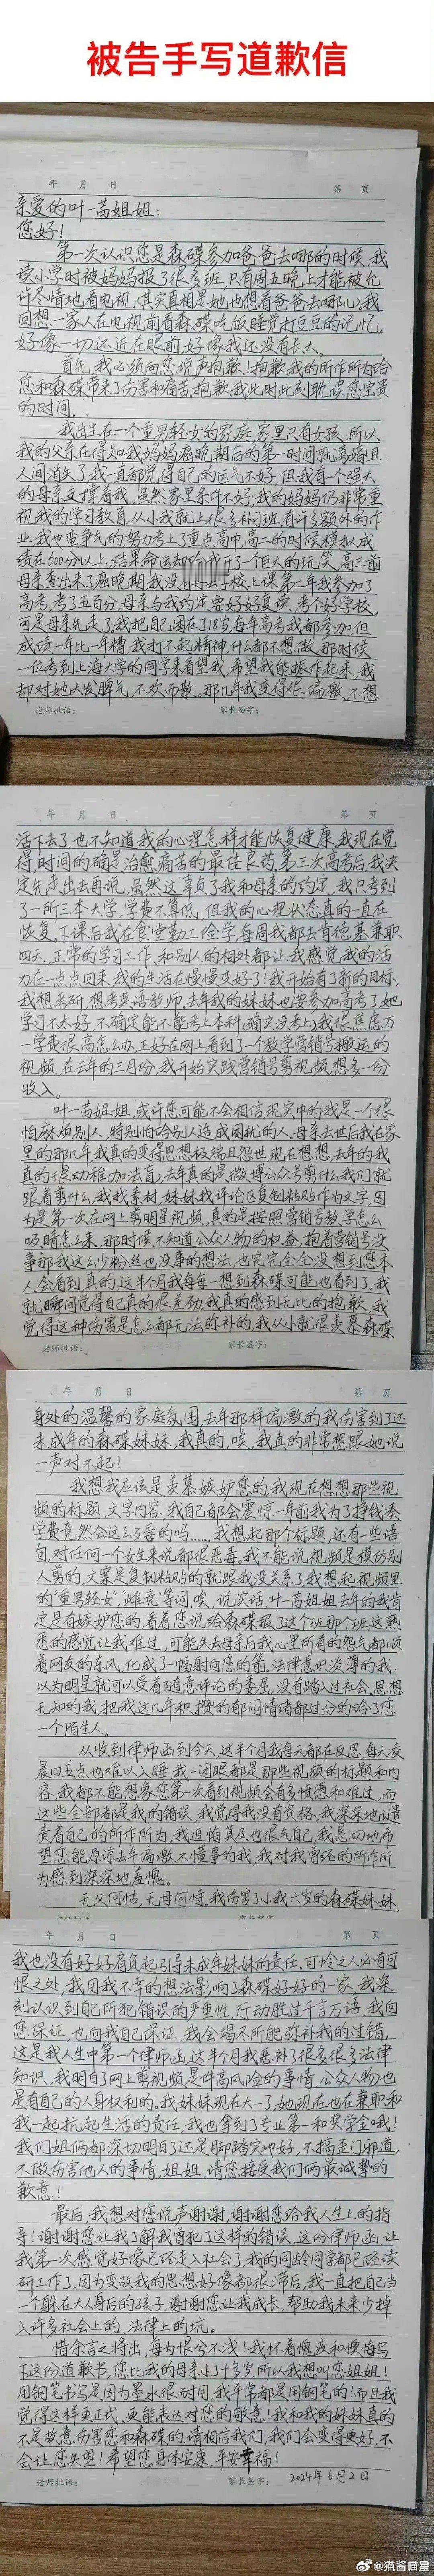 被告手写道歉信
年 月 日 第 页
亲爱的叶一茜姐姐：
您好！
第一次认识您是森碟参加爸爸去哪的时候，我
读小学时被妈妈报了很多班，只有周五晚上才能被允
许尽情地看电视，（其实真相是她也想看爸爸去哪儿）我
回想一家人在电视前看森碟吃饭睡觉打豆豆的记忆，
好像一切还近在眼前，好像我还没有长大。
首先，我必须向您说声抱歉！抱歉我的所作所为给
您和森碟带来了伤害和痛苦，抱歉我此时此刻耽误您宝贵
的时间。
我出生在一个重男轻女的家庭，家里只有女孩，所以
我的父亲在得知我妈妈癌晚期后的第一时间就离婚且
人间消失了，我一直都觉得自己的运气不好，但我有一个强大
的母亲支撑着我，虽然家里条件不好，我的妈妈仍非常重
视我的学习教育，从小我就上很多补习班，有许多额外的作
业，我也蛮争气的努力考上了重点高中，高一的时候模拟成
绩在600分以上，结果命运却和我开了一个巨大的玩笑，高三前
母亲查出来了癌晚期，我没有去上校上课，第二年我参加了
高考，考了五百分，母亲与我约定要好好复读，考个好学校，
可是母亲先走了，我把自己困在了18岁，每年高考我都参加，但
成绩一年比一年糟，我打不起精神，什么都不想做，那时候
一位考到上海大学的同学来看望我，希望我能振作起来，我
却对她大发脾气，不欢而散。那几年我变得很偏激，不想
老师批语： 家长签字：
年 月 日 第 页
活下去了，也不知道我的心理怎样才能恢复健康，我现在觉
得，时间的确是治愈痛苦的最佳良药，第三次高考后，我决
定先走出去再说，虽然这辜负了我和母亲的约定，我只考到
了一所三本大学，学费不算低，但我的心理状态真的一直在
恢复，下课后我在食堂勤工俭学，每周我都去肯德基兼职
四天，正常的学习工作，和别人的相处都让我感觉我的活
力在一点点回来，我的生活在慢慢变好了！我开始有了新的目标，
我想考研，想考英语教师，去年我的妹妹也要参加高考了，她
学习不太好，不确定能不能考上本科（确实没考上）我很焦虑万
一学费很高怎么办，正好在网上看到了一个教学营销号搬运的
视频，在去年的三月份，我开始实践营销号剪视频，想多一份
收入。
叶一茜姐姐，或许您可能不会相信现实中的我是一个很
怕麻烦别人，特别怕给别人造成困扰的人。母亲去世后我在家
里的那几年我真的变得思想极端且怨世，现在想想，去年的我
真的很幼稚加法盲，去年真的是微博公众号剪什么我们就
跟着剪什么，我找素材，妹妹找评论区复制粘贴作为文字，因
为是第一次在网上剪明星视频，真的是按照营销号教学怎么
吸睛怎么来，那时候不知道公众人物的权益，抱着营销号没
事那我这么少粉丝也没事的想法，也完完全全没想到您本
人会看到，真的，这半个月我每每一想到森碟可能也看到了，我
就瞬间觉得自己真的很差劲，我真的感到无比的抱歉，我
觉得这种伤害是怎么都无法弥补的，我从小就很羡慕森碟
老师批语： 家长签字：
年 月 日 第 页
身处的温馨的家庭氛围，去年那样偏激的我伤害到了还
未成年的森碟妹妹，我真的，唉，我真的非常想跟她说
一声对不起！
我想我应该是羡慕嫉妒您的，我现在想想那些视
频的标题，文字内容，我自己都会震惊，一年前我为了挣钱凑
学费竟然会这么歹毒的吗……我想起那个标题，还有一些语
句，对任何一个女生来说都很恶毒。我不能说视频是模仿别
人剪的，文案是复制粘贴的就跟我没关系了，我想起视频里
的“重男轻女”“雌竞”等词，唉，说实话，叶一茜姐姐，去年的我肯
定是有嫉妒您的，看着您说给森碟报了这个班那个班，这熟
悉的感觉让我难过，可能失去母亲后我心里所有的怨气都顺
着网友的东风，化成了一幅射向您的箭，法律意识淡薄的我，
以为明星就可以受着随意评论的委屈，没有踏入过社会，思想
无知的我，把我这几年积攒的郁闷情绪都过分的给了您
一个陌生人。
从收到律师函到今天，这半个月我每天都在反思，每天凌
晨四五点也难以入睡，我一闭眼都是那些视频的标题和内
容，我都不能想象您第一次看到视频会有多愤懑和难过，而
这些全部都是我的错误，我觉得我没有资格，我深深地谴
责着自己的所作所为，我追悔莫及，也很气自己，我恳切地希
望您能原谅去年偏激不懂事的我，我对我曾经的所作所
为感到深深地羞愧。
无父何怙，无母何恃。我伤害了小我六岁的森碟妹妹，
老师批语： 家长签字：
年 月 日 第 页
我也没有好好肩负起引导未成年妹妹的责任。可怜之人必有可
恨之处，我因我不幸的想法影响了森碟好好的一家，我深
刻认识到自己所犯错误的严重性，行动胜过千言万语，我向
您保证，也向我自己保证，我会竭尽所能弥补我的过错，
这是我人生中第一个律师函，这半个月我恶补了很多很多法律
知识，我明白了网上剪视频是件高风险的事情，公众人物也
是有自己的人身权利的。我妹妹现在大一了，她现在也在兼职和
我一起扛起生活的责任，我也拿到了专业第一和奖学金哦！
我们姐俩都深切明白了还是脚踏实地好，不搞歪门邪道，
不做伤害他人的事情，姐姐，请您接受我们俩最诚挚的
歉意！
最后，我想对您说声谢谢，谢谢您给我人生上的指
导！谢谢您让我了解我曾犯了这样的错误，这份律师函，让
我第一次感觉好像已经走入社会了，我的同龄同学都已经读
研工作了，因为变故我的思想好像都很滞后，我一直把自己当
一个躲在大人身后的孩子，谢谢您让我成长，帮助我未来少掉
入许多社会上的，法律上的坑。
惜余言之将出，每为恨兮不浅！我怀着愧疚和懊悔写
下这份道歉书，您比我的母亲小了十多岁，所以我想叫您姐姐！
用钢笔书写是因为墨水很耐用，我平常都是用钢笔的！而且我
觉得这样更正式，更能表达对您的敬意！我和我的妹妹真的
不是故意伤害您和森碟的，请相信我们，我们会变得更好，不
会让您失望！希望您身体安康，平安幸福！
老师批语： 家长签字： 2024年6月2日
@猫酱喵黨